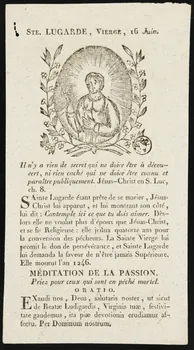 Ste. LUGARDE, Vierge, 16 Juin.
Il n'y a rien de secret qui ne doive être à découvert,
ni rien caché qui ne doive être connu et
paraître publiquement. Jésus-Christ en S. Luc,
ch. 8.
Sainte Lugarde étant prête de se marier, Jésus-
Christ lui apparut, et lui montrant son côté,
lui dit: Contemple ici ce que tu dois aimer. Dès-
lors elle ne voulut plus d'époux que Jésus-Christ,
et se fit Religieuse: elle jeûna quatorze ans pour
la conversion des pécheurs. La Sainte Vierge lui
promit le don de persévérance, et Sainte Lugarde
lui demanda la faveur de n'être jamais Supérieure.
Elle mourut l'an 1246.
MÉDITATION DE LA PASSION.
Priez pour ceux qui sont en péché mortel.
ORATIO.
Exaudi nos, Deus, salutaris noster, ut sicut
de Beatæ Ludgardis, Virginis tuæ, festivitate
gaudemus, ita piæ devotionis erudiamur affectu.
Per Dominum nostrum.